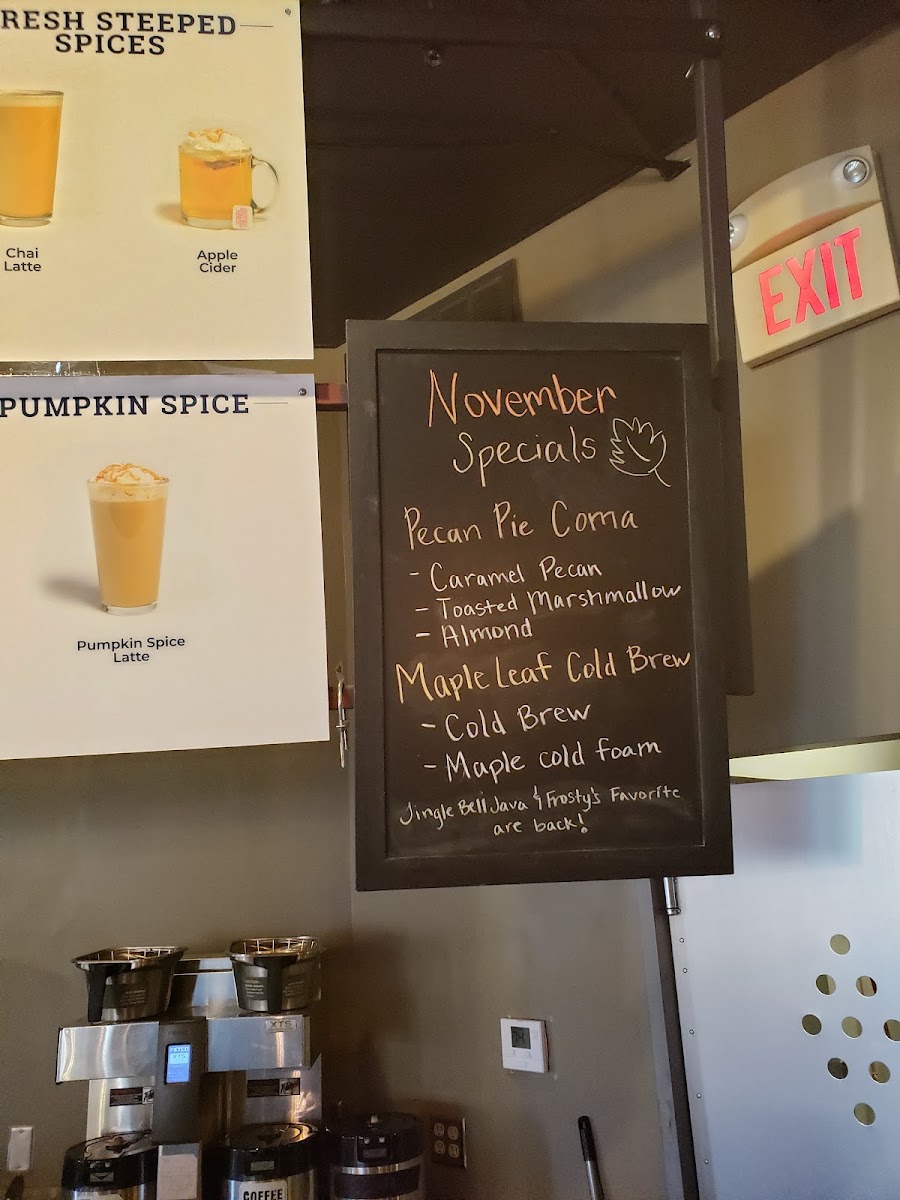 RESH STEEPED
SPICES
Chai
Latte
Apple
Cider
PUMPKIN SPICE
Pumpkin Spice
Latte
EXIT
November
Specials
Pecan Pie Coma
- Caramel Pecan
- Toasted Marshmallow
- Almond
Maple Leaf Cold Brew
- Cold Brew
- Maple cold foam
Jingle Bell Java & Frosty's Favorite
are back!
FETCO
XTS
XTS
COFFEE